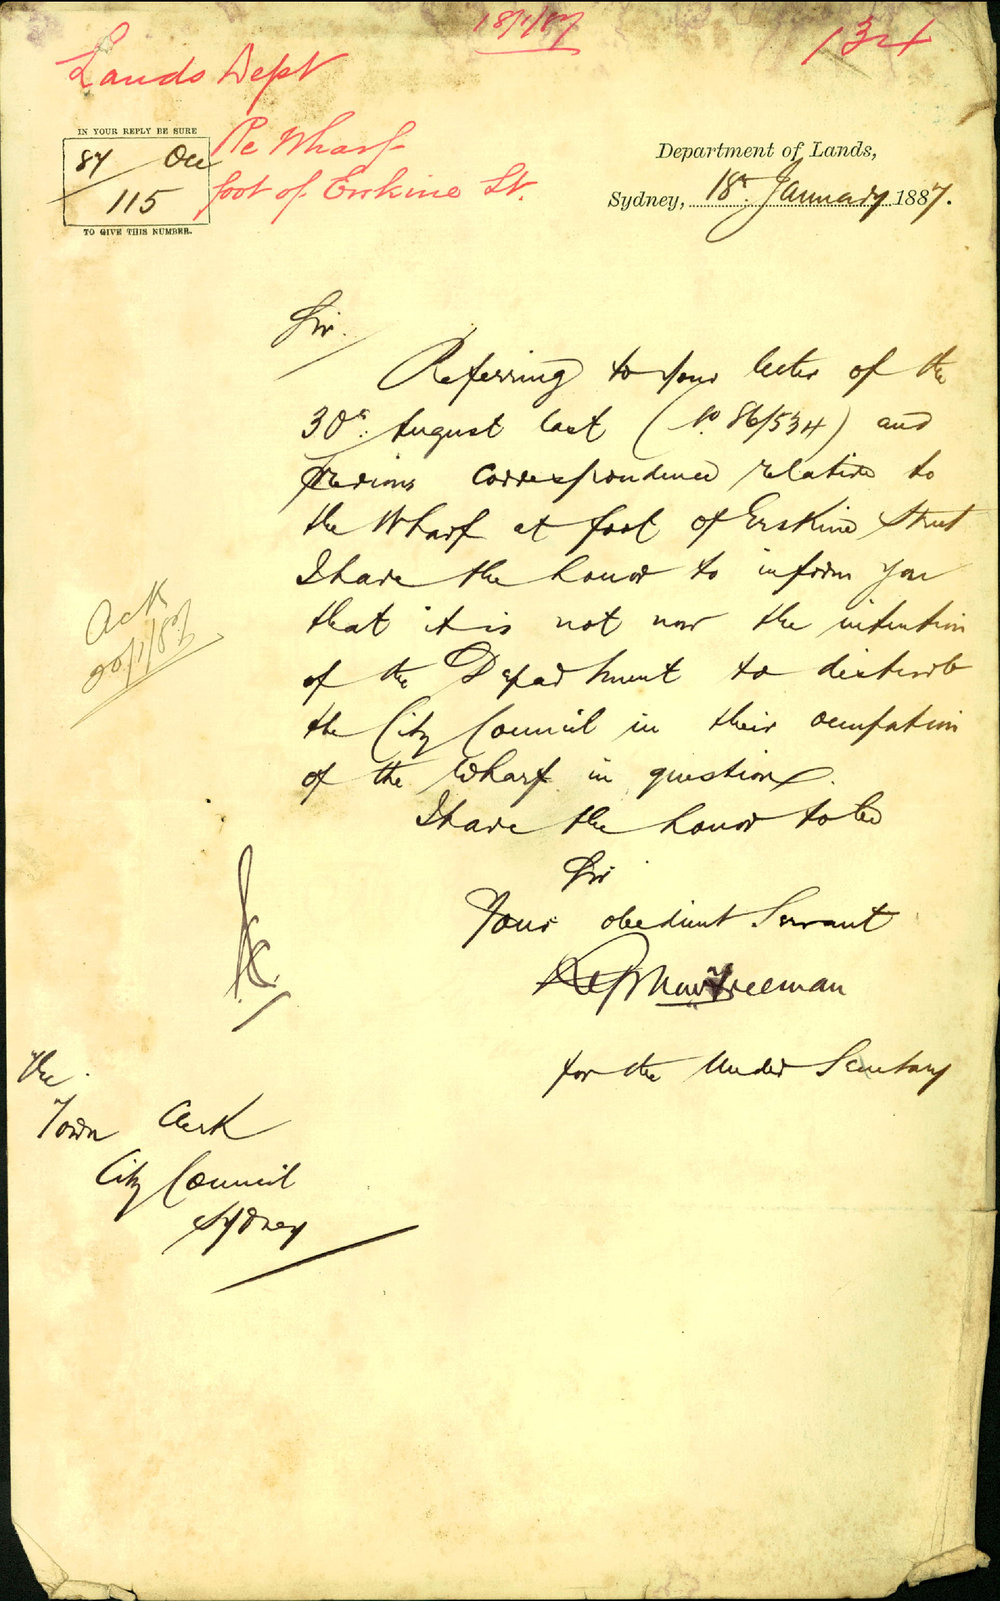 18/1/87
134
Lands Dept
Re Wharf
foot of Erskine St.
IN YOUR REPLY BE SURE
87 Occ
115
TO GIVE THIS NUMBER.
Department of Lands,
Sydney, 18th January 1887.
Sir.
Referring to your letter of the
30th August last (No 86/534) and
previous correspondence relative to
the Wharf at foot of Erskine Street
I have the honor to inform you
that it is not now the intention
of the Department to disturb
the City Council in their occupation
of the Wharf in question.
I have the honor to be
Sir
Your obedient Servant
Freeman
for the Under Secretary
Ack
20/1/87
The
Town Clerk
City Council
Sydney